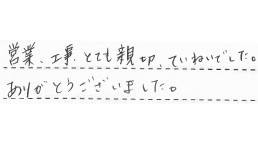 営業、工事、とても親切、ていねいでした。
ありがとうございました。